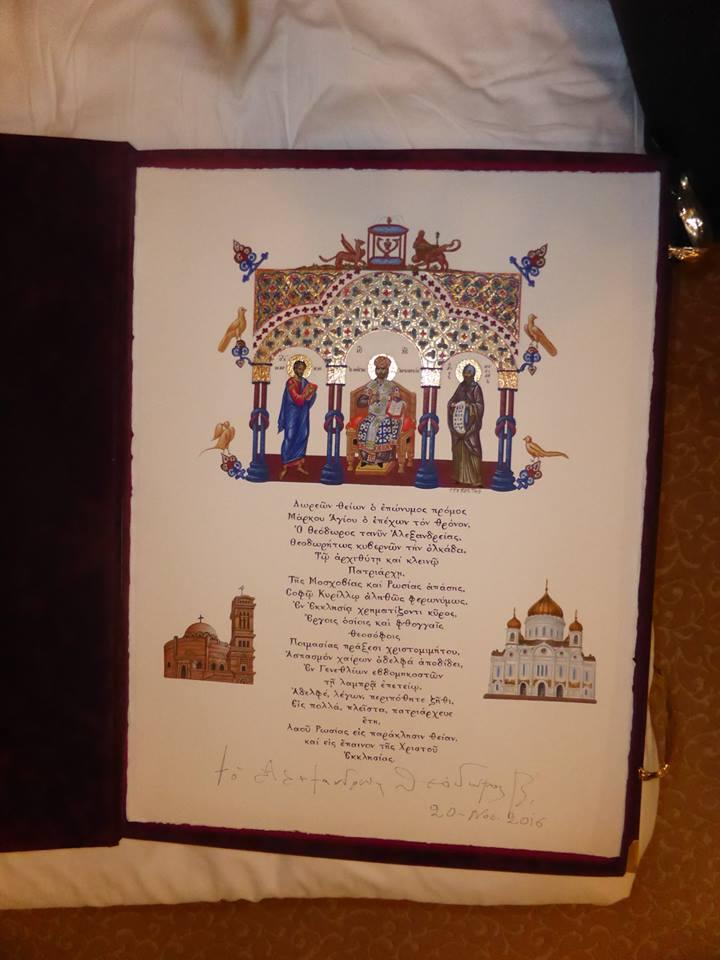 Δωρεῶν θείων ὁ ἐπώνυμος πρόμος
Μάρκου Ἁγίου ὁ ἐπέχων τόν θρόνον,
Ὁ Θεόδωρος τανῦν Ἀλεξανδρείας,
Θεοδωρήτως κυβερνῶν τήν ὁλκάδα,
Τῷ ἀρχιθύτῃ καί κλεινῷ
Πατριάρχῃ,
Τῆς Μοσχοβίας καί Ρωσίας ἁπάσης,
Σοφῷ Κυρίλλῳ ἀληθῶς φερωνύμως,
Ἐν Ἐκκλησίᾳ χρηματίζοντι κῦρος,
Ἔργοις ὁσίοις καί φθογγαῖς
θεοσόφοις
Ποιμασίας πράξεσι χριστομιμήτου,
Ἀσπασμόν χαίρων ἀδελφά ἀποδίδει,
Ἐν Γενεθλίων ἑβδομηκοστῶν
τῇ λαμπρᾷ ἐπετείῳ,
Ἀδελφέ, λέγων, περιπόθητε ζῆθι,
Εἰς πολλά, πλεῖστα, πατριάρχευε
ἔτη,
Λαοῦ Ρωσίας εἰς παράκλησιν θείαν,
καί εἰς ἔπαινον τῆς Χριστοῦ
Ἐκκλησίας.
ὁ Ἀλεξανδρείας Θεόδωρος Β΄
20 - Νοε. 2016